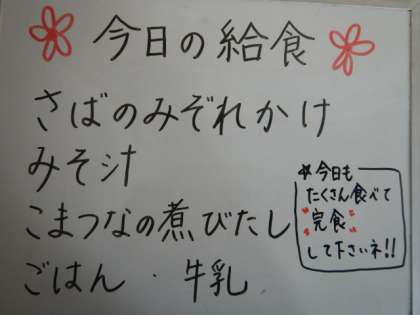 今日の給食
さばのみぞれかけ
みそ汁
こまつなの煮びたし
ごはん・牛乳
☆今日も
たくさん食べて
"完食"
して下さいネ!!